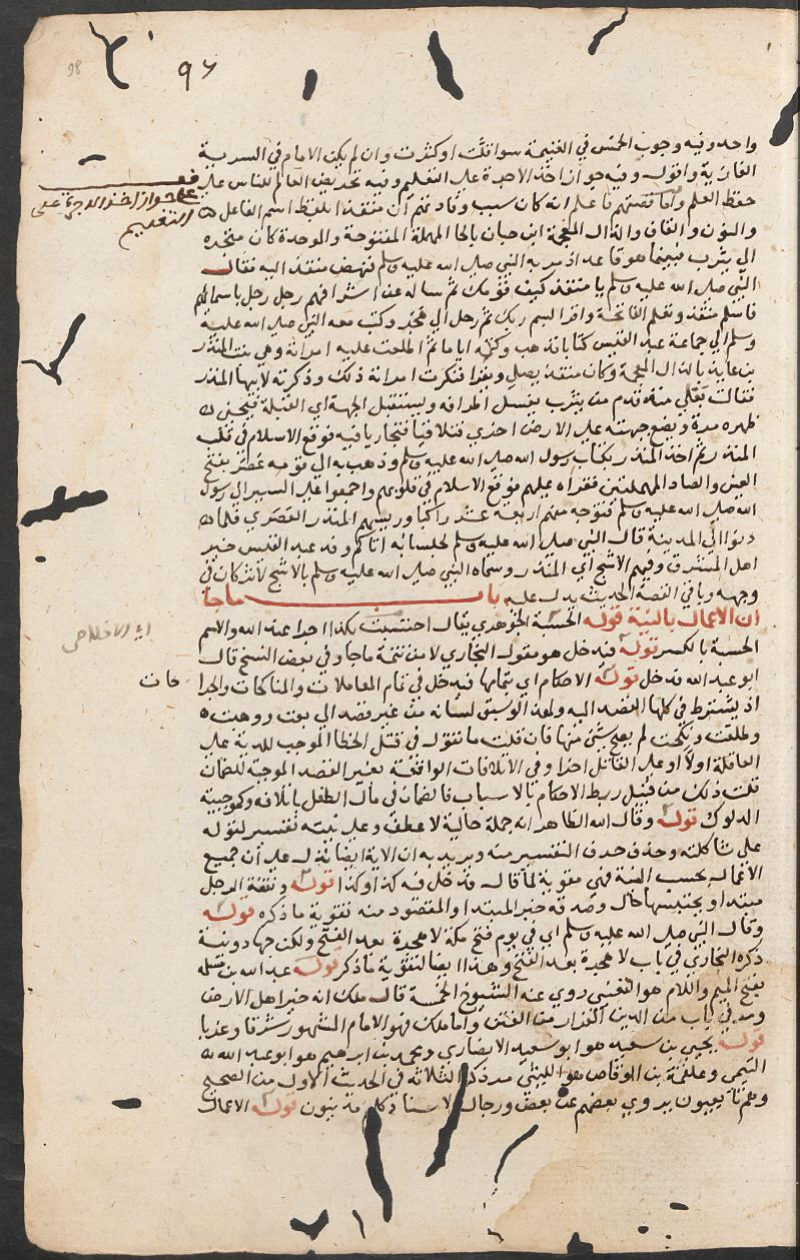 98
٩٧
واحد وفيه وجوب الخمس في الغنيمة سوا قلت او كثرت وان لم يكن الامام في السرية
الغازية واقول وفيه جواز اخذ الاجرة على التعليم وفيه تحريض العالم للناس على
حفظ العلم واما قصتهم فاعلم انه كان سبب وفادتهم ان منقذا بلفظ اسم الفاعل
والنون والقاف والذال المعجمة ابن حبان بالحا المهملة المفتوحة والموحدة كان متجره
الي يثرب فبينما هو قاعد اذ مر به النبي صلى الله عليه وسلم فنهض منقذ اليه فقال
النبي صلى الله عليه وسلم يا منقذ كيف قومك ثم ساله عن اشرافهم رجل رجل باسمائهم
فاسلم منقذ وتعلم الفاتحة واقرا باسم ربك ثم رحل الي هجر وكتب معه النبي صلى الله عليه
وسلم الي جماعة عبد القيس كتابا فذهب وكتمه اياما ثم اطلعت عليه امراته وهي بنت المنذر
بن عايذ بالذال المعجمة وكان منقذ يصلي ويقرا فنكرت امراته ذلك وذكرته لابيها المنذر
فقالت بعلي منذ قدم من يثرب يغسل اطرافه ويستقبل الجهة اي القبلة فيحني
ظهره مرة ويضع جبهته على الارض اخري فتلاقيا فتجاريا فيه فوقع الاسلام في قلب
المنذر ثم اخذ المنذر بكتاب رسول الله صلى الله عليه وسلم وذهب به الي قومه عصر بفتح
العين والصاد المهملتين فقراه عليهم فوقع الاسلام في قلوبهم واجمعوا على السير الي رسول
الله صلى الله عليه وسلم فتوجه منهم اربعة عشر راكبا ورييسهم المنذر العصري فلما
دنوا الي المدينة قال النبي صلى الله عليه وسلم لجلسائه اتاكم وفد عبد القيس خير
اهل المشرق وفيهم الاشج اي المنذر وسماه النبي صلى الله عليه وسلم بالاشج لاثر كان في
وجهه وباقي القصة الحديث يدل عليه باب ما جا
ان الاعمال بالنية قوله الحسبة الجوهري يقال احتسبت بكذا اجرا عند الله والاسم
الحسبة بالكسر قوله فدخل هو مقول البخاري لا من تتمة ما جا وفي بعض النسخ قال
ابو عبد الله فدخل قوله الاحكام اي بتمامها فيدخل في تمام المعاملات والمناكحات والجرا
حات
اذ يشترط في كلها القصد اليه ولهذا لو سبق لسانه من غير قصد الي بعت ووهبت
وطلقت ونكحت لم يصح شي منها فان قلت ما تقول في قتل الخطا الموجب للدية على
العاقلة اولا او على القاتل اخرا وفي الاتلافات الواقعة بغير القصد الموجبة للضمان
قلت ذلك من قبيل ربط الاحكام بالاسباب فالضمان في مال الطفل باتلافه وكموجبية
الدلوك قوله وقال الله الظاهر انه جملة حالية لا عطف وعلى نيته تفسير لقوله
على شاكلته وحذف حرف التفسير منه ويريد به ان الاية ايضا تدل على ان جميع
الاعمال بحسب النية فهي مقوية لما قال فدخل فيه كذا وكذا قوله ونفقة الرجل
مبتدا ويحتسبها حال وصدقة خبر المبتدا والمقصود منه تقوية ما ذكره قوله
وقال النبي صلى الله عليه وسلم اي في يوم فتح مكة لا هجرة بعد الفتح ولكن جهاد ونية
ذكره البخاري في باب لا هجرة بعد الفتح وهذا ايضا لتقوية ما ذكر قوله عبد الله بن مسلمة
بفتح الميم واللام هو القعنبي روي عنه الشيوخ الخمسة قال ملك انه خير اهل الارض
ومر في باب من الدين الفرار من الفتن واما ملك فهو الامام المشهور شرقا وغربا
قوله يحيى بن سعيد هو ابو سعيد الانصاري ومحمد بن ابرهيم هو ابو عبد الله
التيمي وعلقمة بن الوقاص هو الليثي مر ذكر الثلاثة في الحديث الاول من الصحيح
وهم تابعيون يروي بعضهم عن بعض ورجال الاسناد كلهم مدنيون قوله الاعمال
على جواز اخذ الاجرة على
التعليم